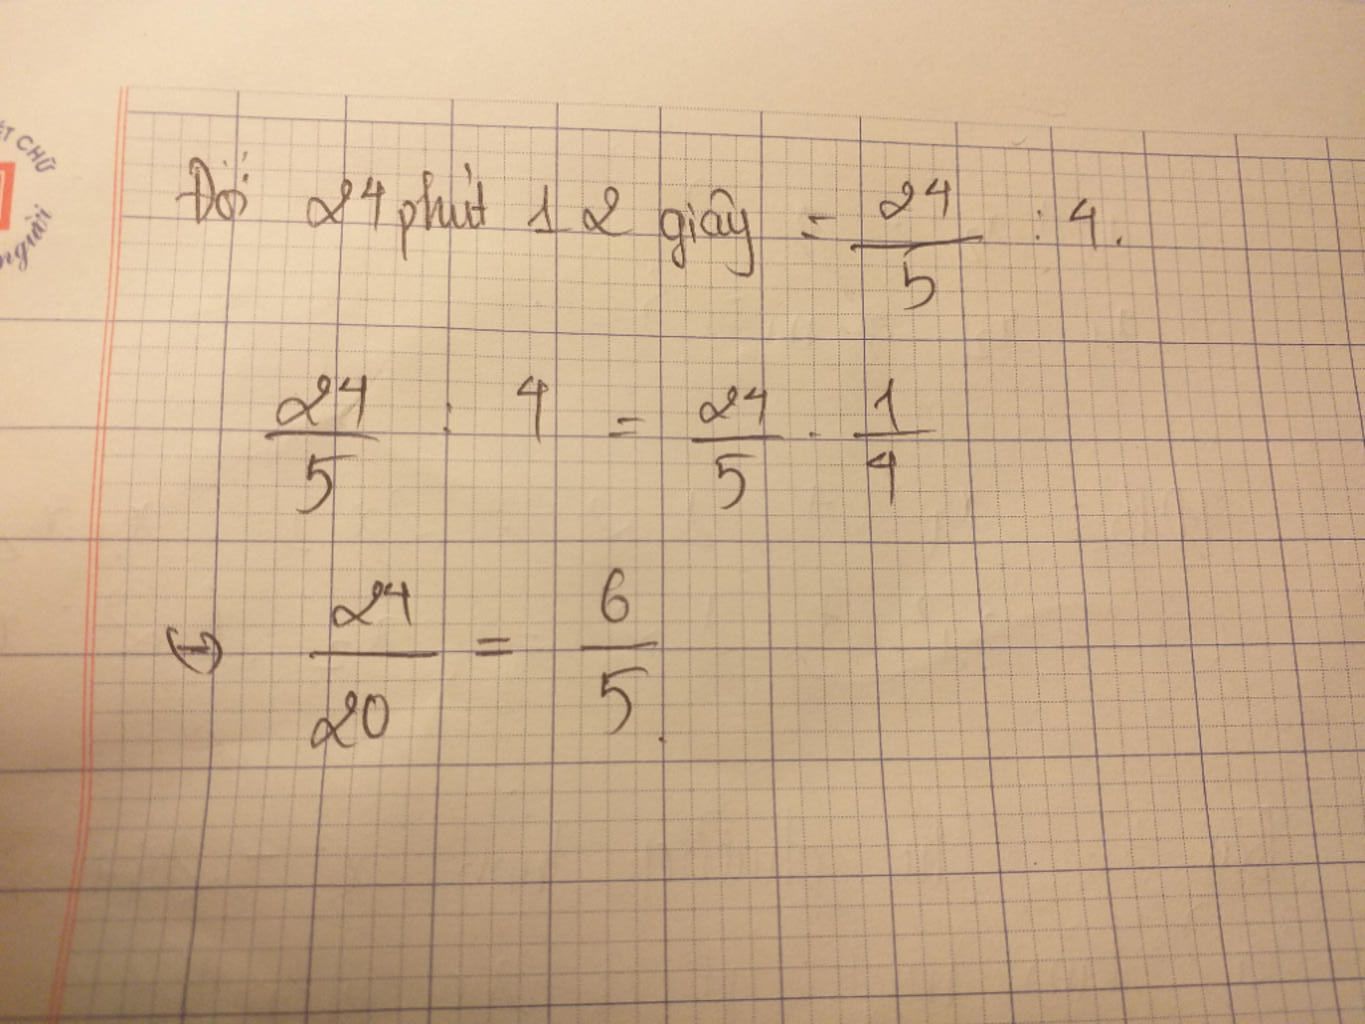 ẾT CHỮ
người
Đổi 24 phút 12 giây = 24/5 : 4.
24/5 : 4 = 24/5 . 1/4
24/20 = 6/5.